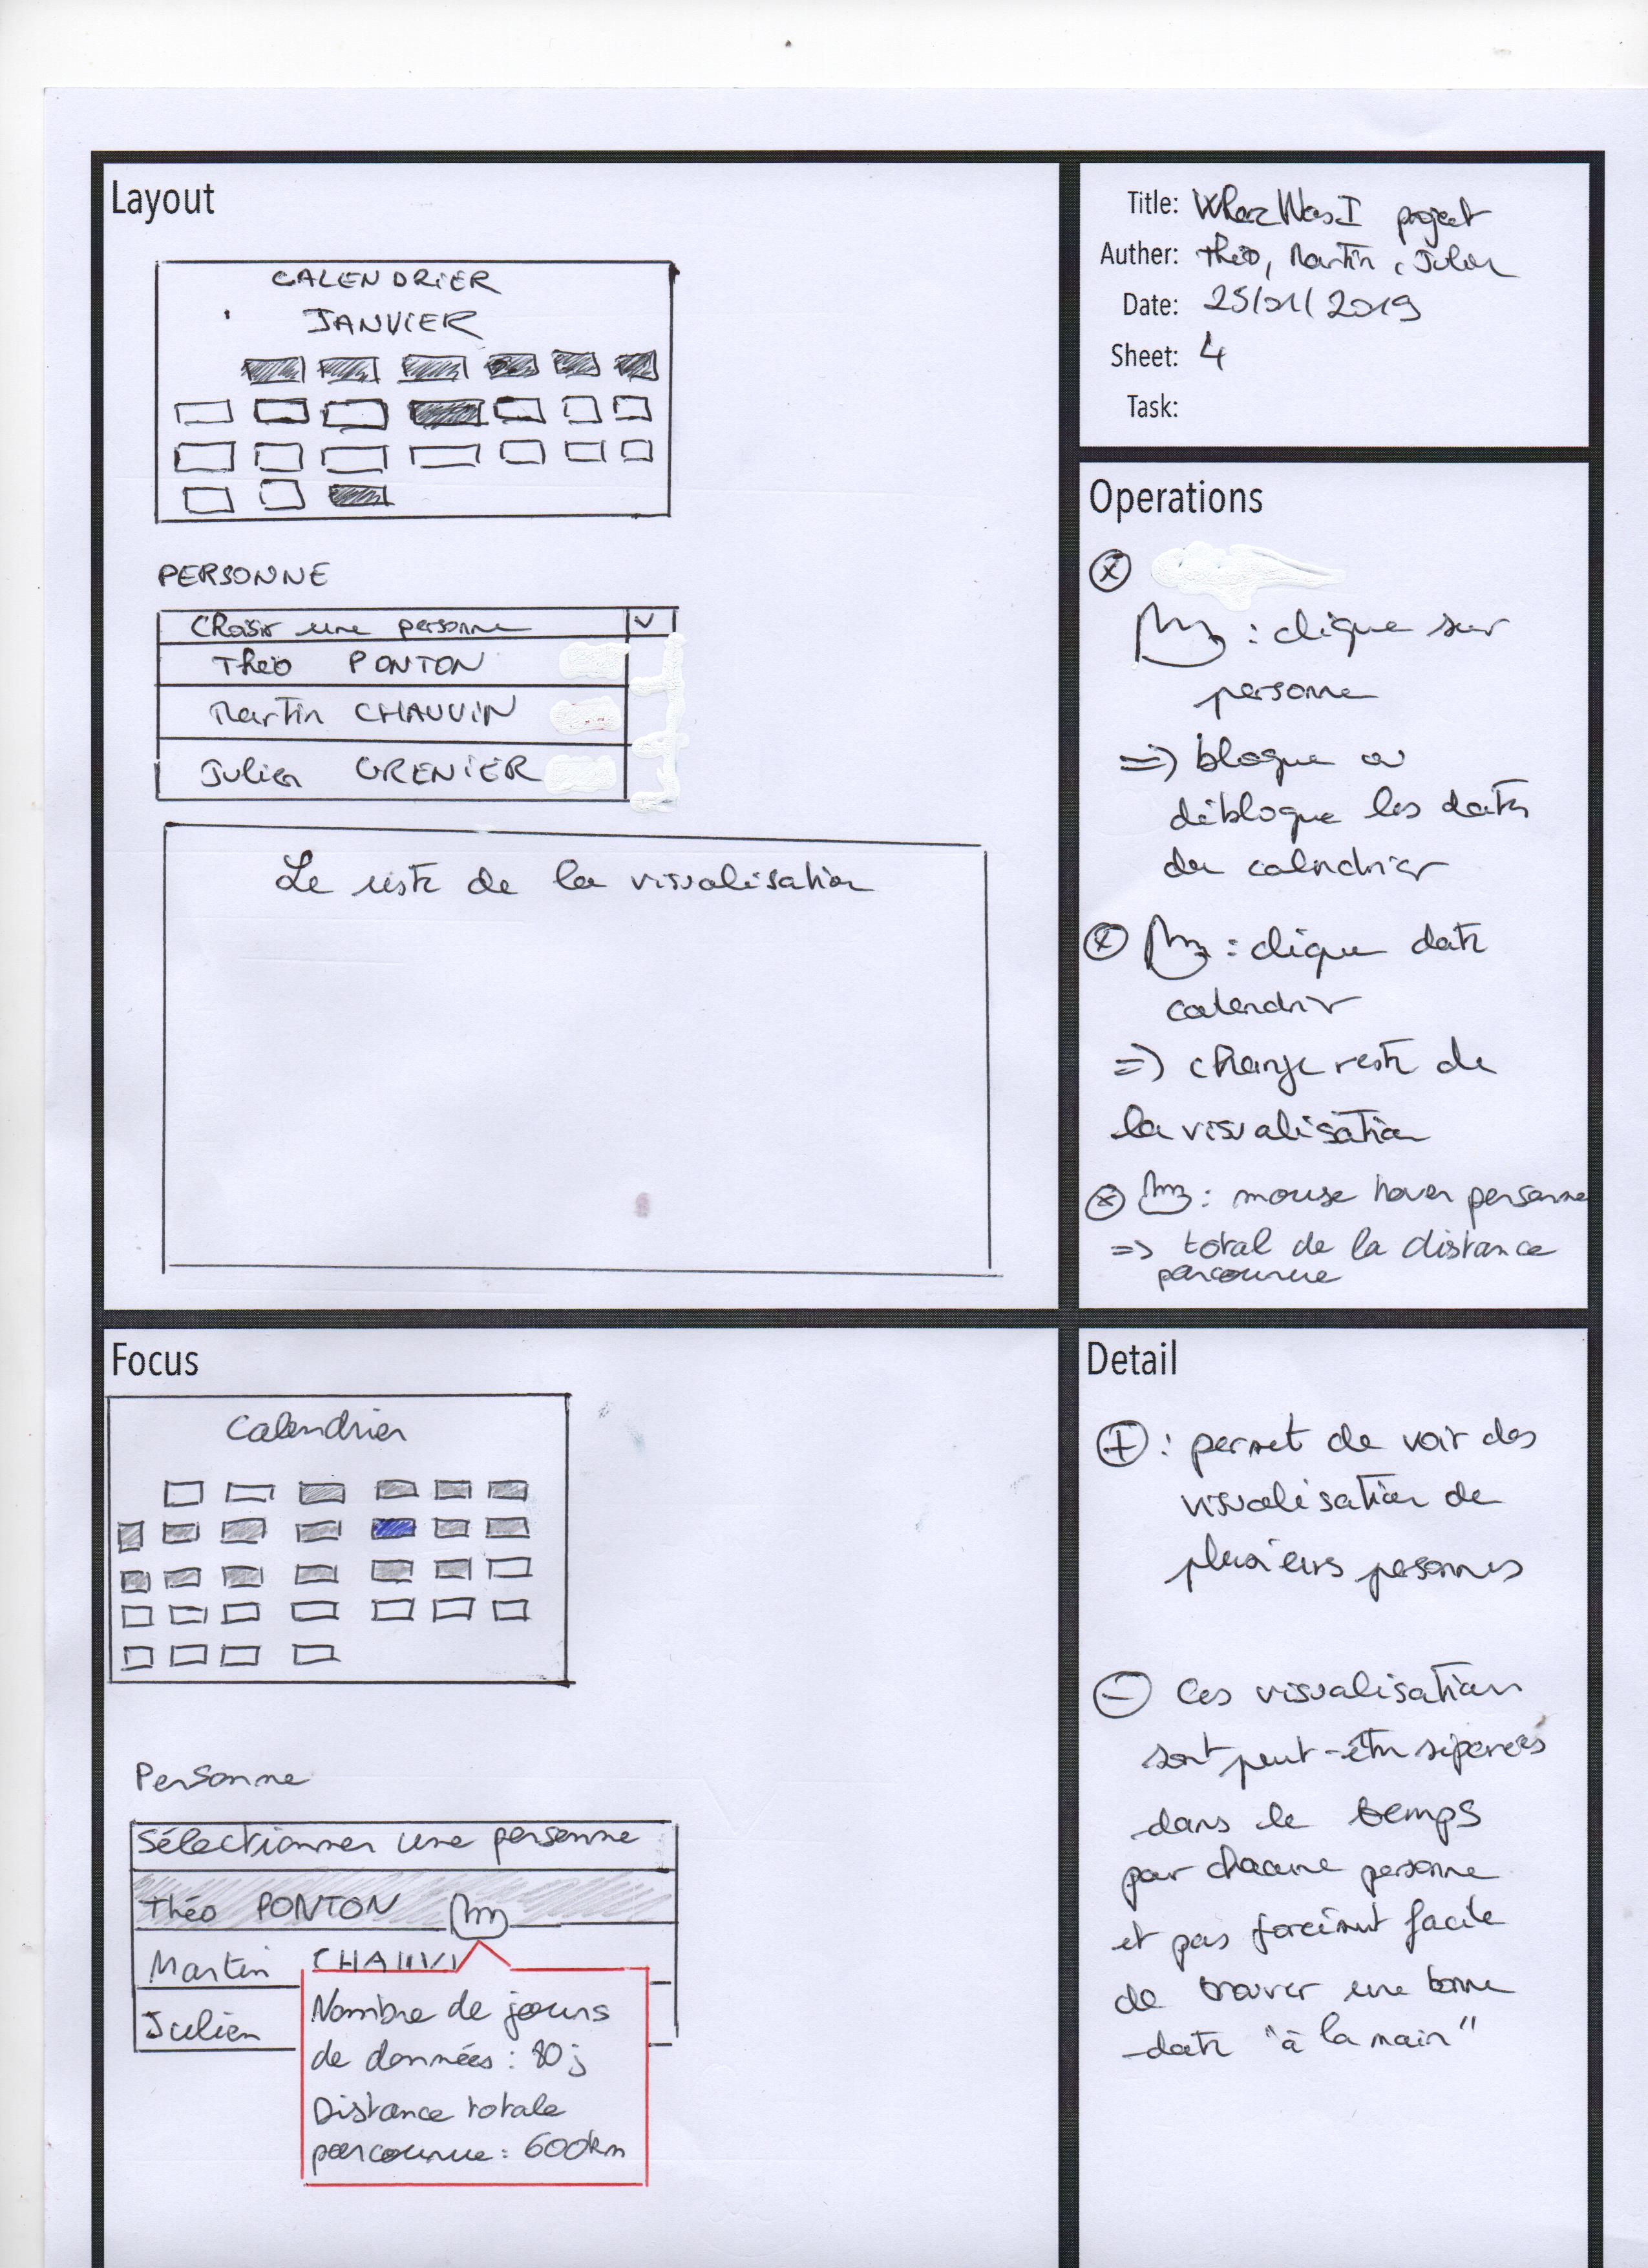 Layout
CALENDRIER
JANVIER
PERSONNE
Choisir une personne
Théo PONTON
Martin CHAUVIN
Julien GRENIER
Le reste de la visualisation
Title: WhereWasI project
Auther: Théo, Martin, Julien
Date: 25/01/2019
Sheet: 4
Task:
Operations
: clique sur
personne
=> bloque ou
débloque les dates
du calendrier
: clique date
calendrier
=> change reste de
la visualisation
: mouse hover personne
=> total de la distance
parcourue
Focus
Calendrier
Personne
Sélectionner une personne
Théo PONTON
Martin CHAUVI
Julien
Nombre de jours
de données : 80 j
Distance totale
parcourue : 600km
Detail
+ : permet de voir des
visualisation de
plusieurs personnes
- Ces visualisations
sont peut-être séparées
dans le temps
par chacune personne
et pas forcément facile
de trouver une bonne
date "à la main"